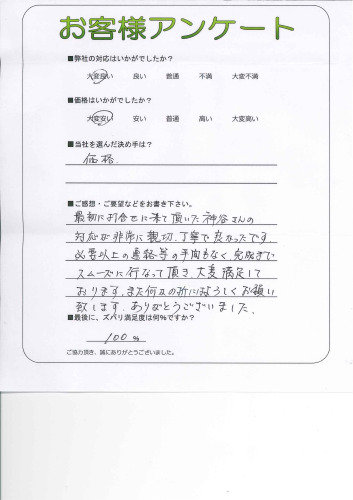 お客様アンケート
■弊社の対応はいかがでしたか?
大変良い 良い 普通 不満 大変不満
■価格はいかがでしたか?
大変安い 安い 普通 高い 大変高い
■当社を選んだ決め手は?
価格.
■ご感想・ご要望などをお書き下さい。
最初に打合せに来て頂いた神谷さんの
対応が非常に親切、丁寧で良かったです。
必要以上の連絡等の手間もなく、完成まで
スムーズに行なって頂き、大変満足して
おります。また何かの折にはよろしくお願い
致します。ありがとうございました。
■最後に、ズバリ満足度は何%ですか?
100 %
ご協力頂き、誠にありがとうございました。